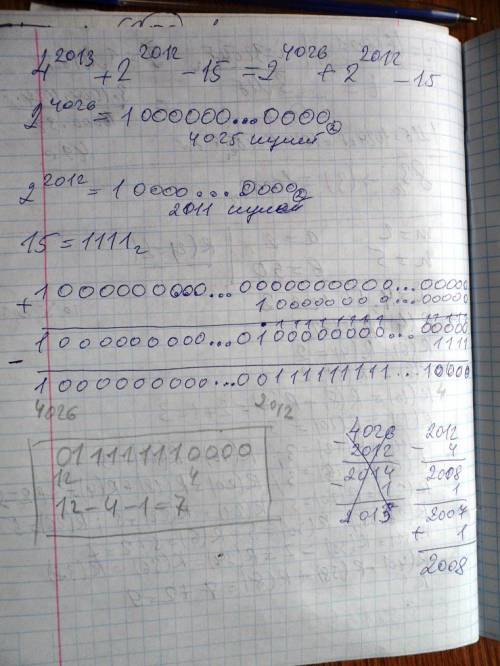 4^2013 + 2^2012 - 15 = 2^4026 + 2^2012 - 15
2^4026 = 1 000000...0000₂
4025 нулей
2^2012 = 1 0000...0000₂
2011 нулей
15 = 1111₂
+ 1000000000...0000000000...00000
10000000 0...00000
- 1000000000...0100000000...00000
1111
1000000000...0011111111...10000
4026 2012 4
011111110000
12 4
12-4-1=7
4026
- 2012
2014
- 1
2013
2012
- 4
2008
- 1
2007
+ 1
2008